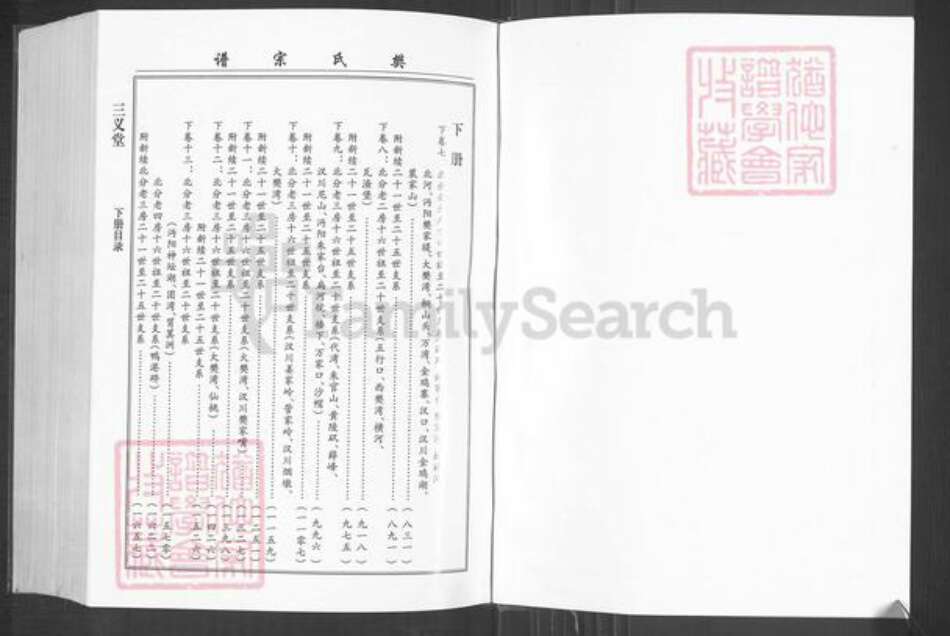 樊氏宗谱
下册
下卷七
北河、沔阳樊家堤、大樊湾、铜山头、万湾、金鸡寨、汉口、汉川金鸡湖、
裴家山)……(八三一)
附新续二十一世至二十五世支系……(八九一)
下卷八：北分老二房十六世祖至二十世支系(五行口、西樊湾、横河、
瓦渣堡)……(九一八)
附新续二十一世至二十五世支系……(九七五)
下卷九：北分老三房十六世祖至二十世支系(代湾、朱官山、黄陵矶、薛峰、
汉川尼山、沔阳朱家台、乌河役、楼下、万家口、沙帽)……(九九六)
附新续二十一世至二十五世支系……(一一零七)
下卷十：北分老三房十六世祖至二十世支系(汉川姜家岭、管家岭、汉川烟墩、
大樊湾)……(一一五九)
附新续二十一世至二十五世支系……(一二五一)
下卷十一：北分老三房十六世祖至二十世支系(大樊湾、汉川樊家嘴)……(一三二七)
附新续二十一世至二十五世支系……(一三九八)
下卷十二：北分老三房十六世祖至二十世支系(大樊湾、仙桃)……(一四二六)
附新续二十一世至二十五世支系……(一五二六)
下卷十三：北分老三房十六世祖至二十世支系
(沔阳神坛湖、团湾、贸其洲)……(一五七零)
北分老四房十六世祖至二十世支系(鸭港碑)……(一六二二)
附新续北分老三房二十一世至二十五世支系……(一六五七)
三义堂
下册目录
FamilySearch
犹他家
谱学会
收藏
犹他家
谱学会
收藏